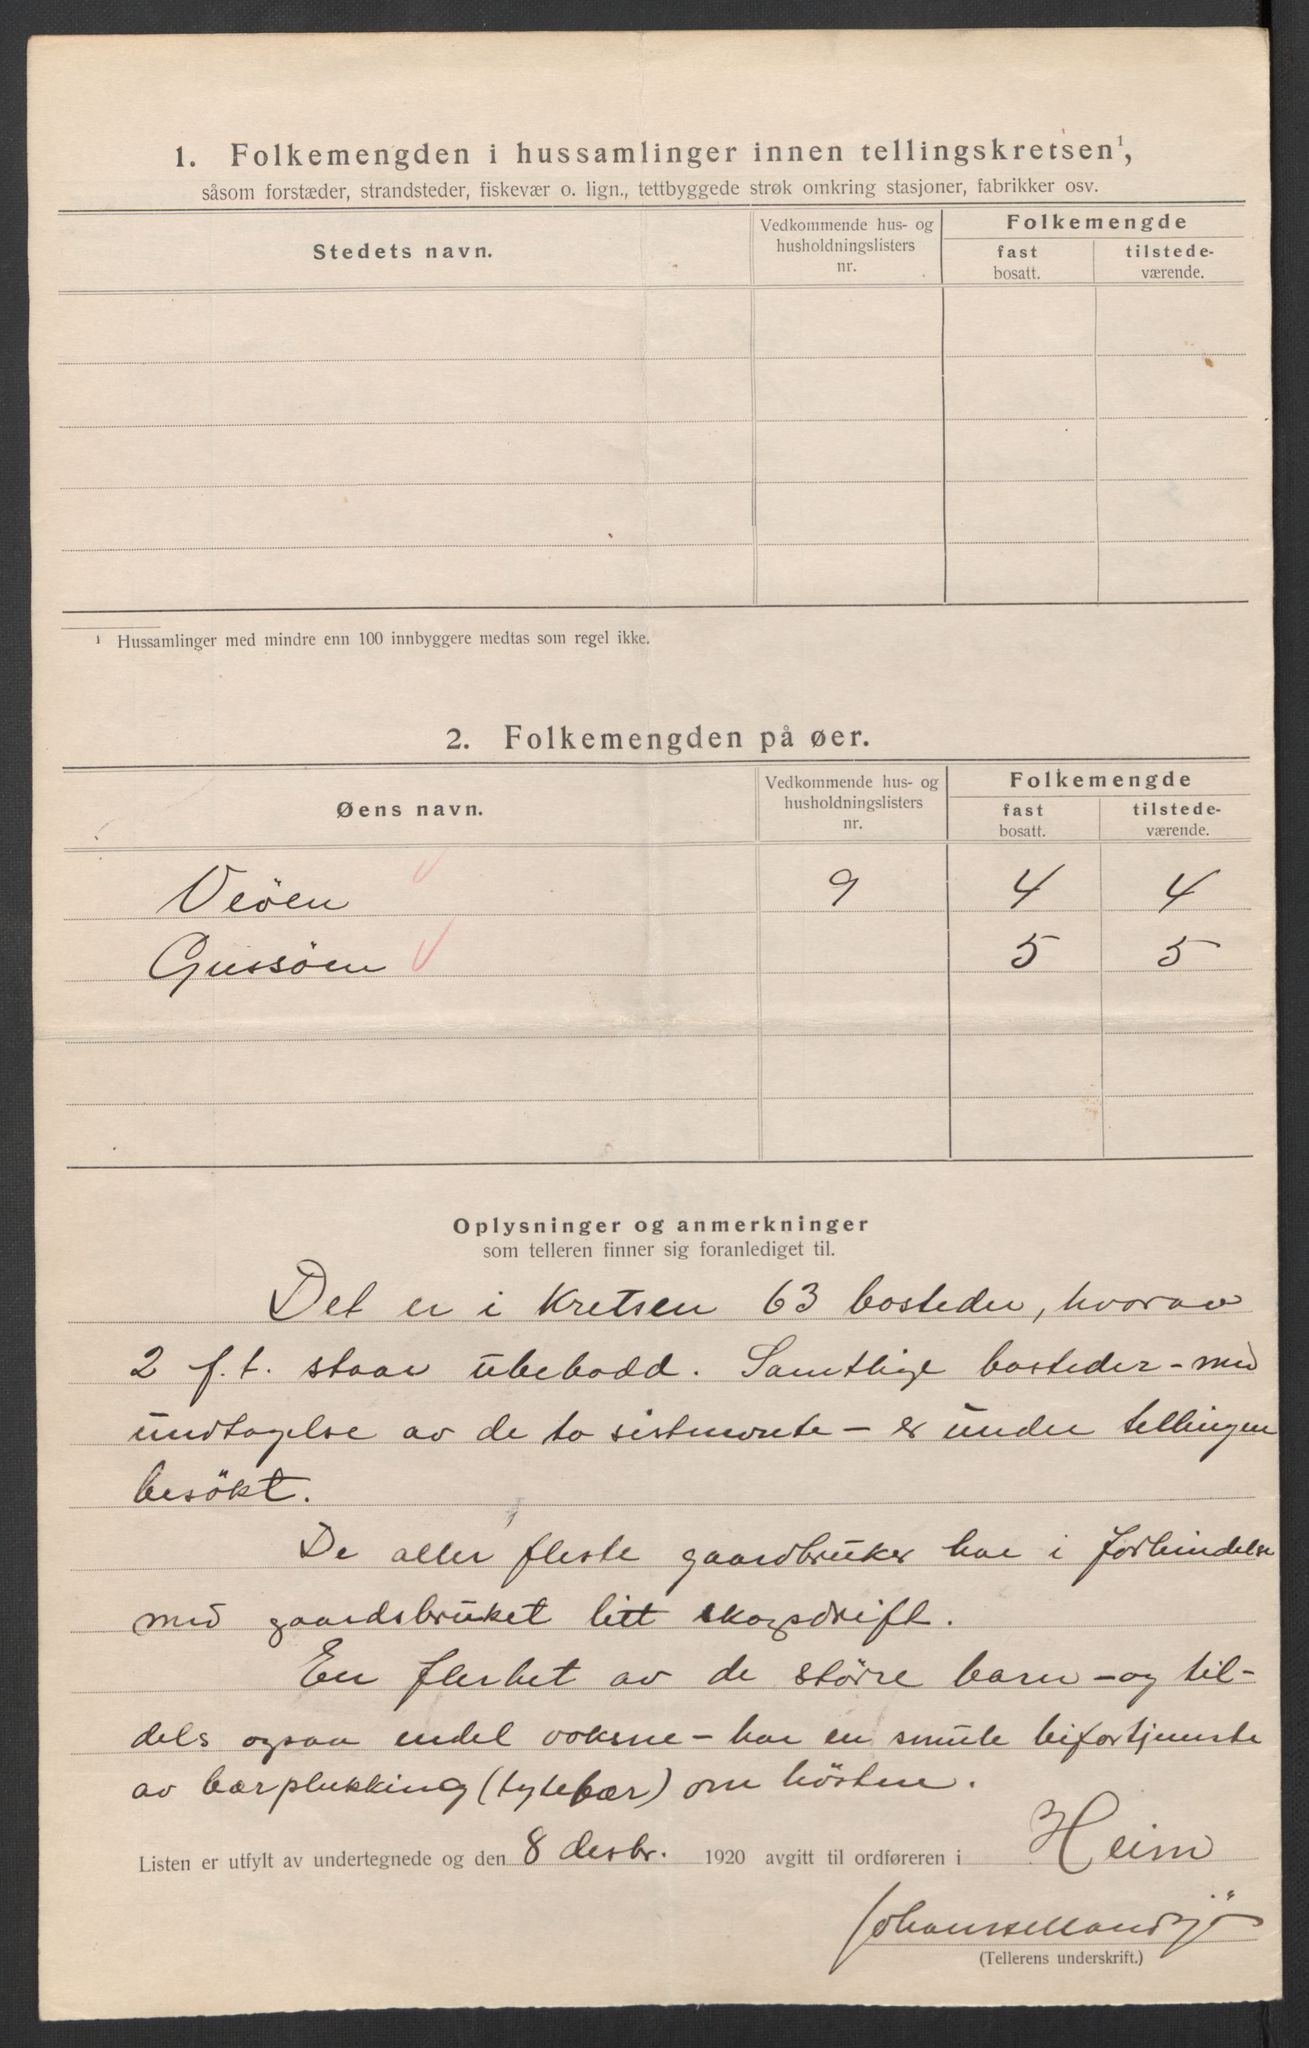 1. Folkemengden i hussamlinger innen tellingskretsen¹,
såsom forstæder, strandsteder, fiskevær o. lign., tettbyggede strøk omkring stasjoner, fabrikker osv.
Stedets navn.
Vedkommende hus- og
husholdningslisters
nr.
Folkemengde
fast
bosatt.
tilstede-
værende.
¹ Hussamlinger med mindre enn 100 innbyggere medtas som regel ikke.
2. Folkemengden på øer.
Øens navn.
Vedkommende hus- og
husholdningslisters
nr.
Folkemengde
fast
bosatt.
tilstede-
værende.
Veöen 9 4 4
Gussöen 5 5
Oplysninger og anmerkninger
som telleren finner sig foranlediget til.
Det er i kretsen 63 bosteder, hvorav
2 f. t. staar ubebodd. Samtlige bosteder - med
undtagelse av de to sistnevnte - er under tellingen
besökt.
De aller fleste gaardbruker har i forbindelse
med gaardsbruket litt skogsdrift.
En flerhet av de större barn - og til-
dels ogsaa endel voksne - har en smule bifortjeneste
av bærplukking (tytebær) om hösten.
Listen er utfylt av undertegnede og den 8 desbr. 1920 avgitt til ordføreren i Heim
(Tellerens underskrift.)